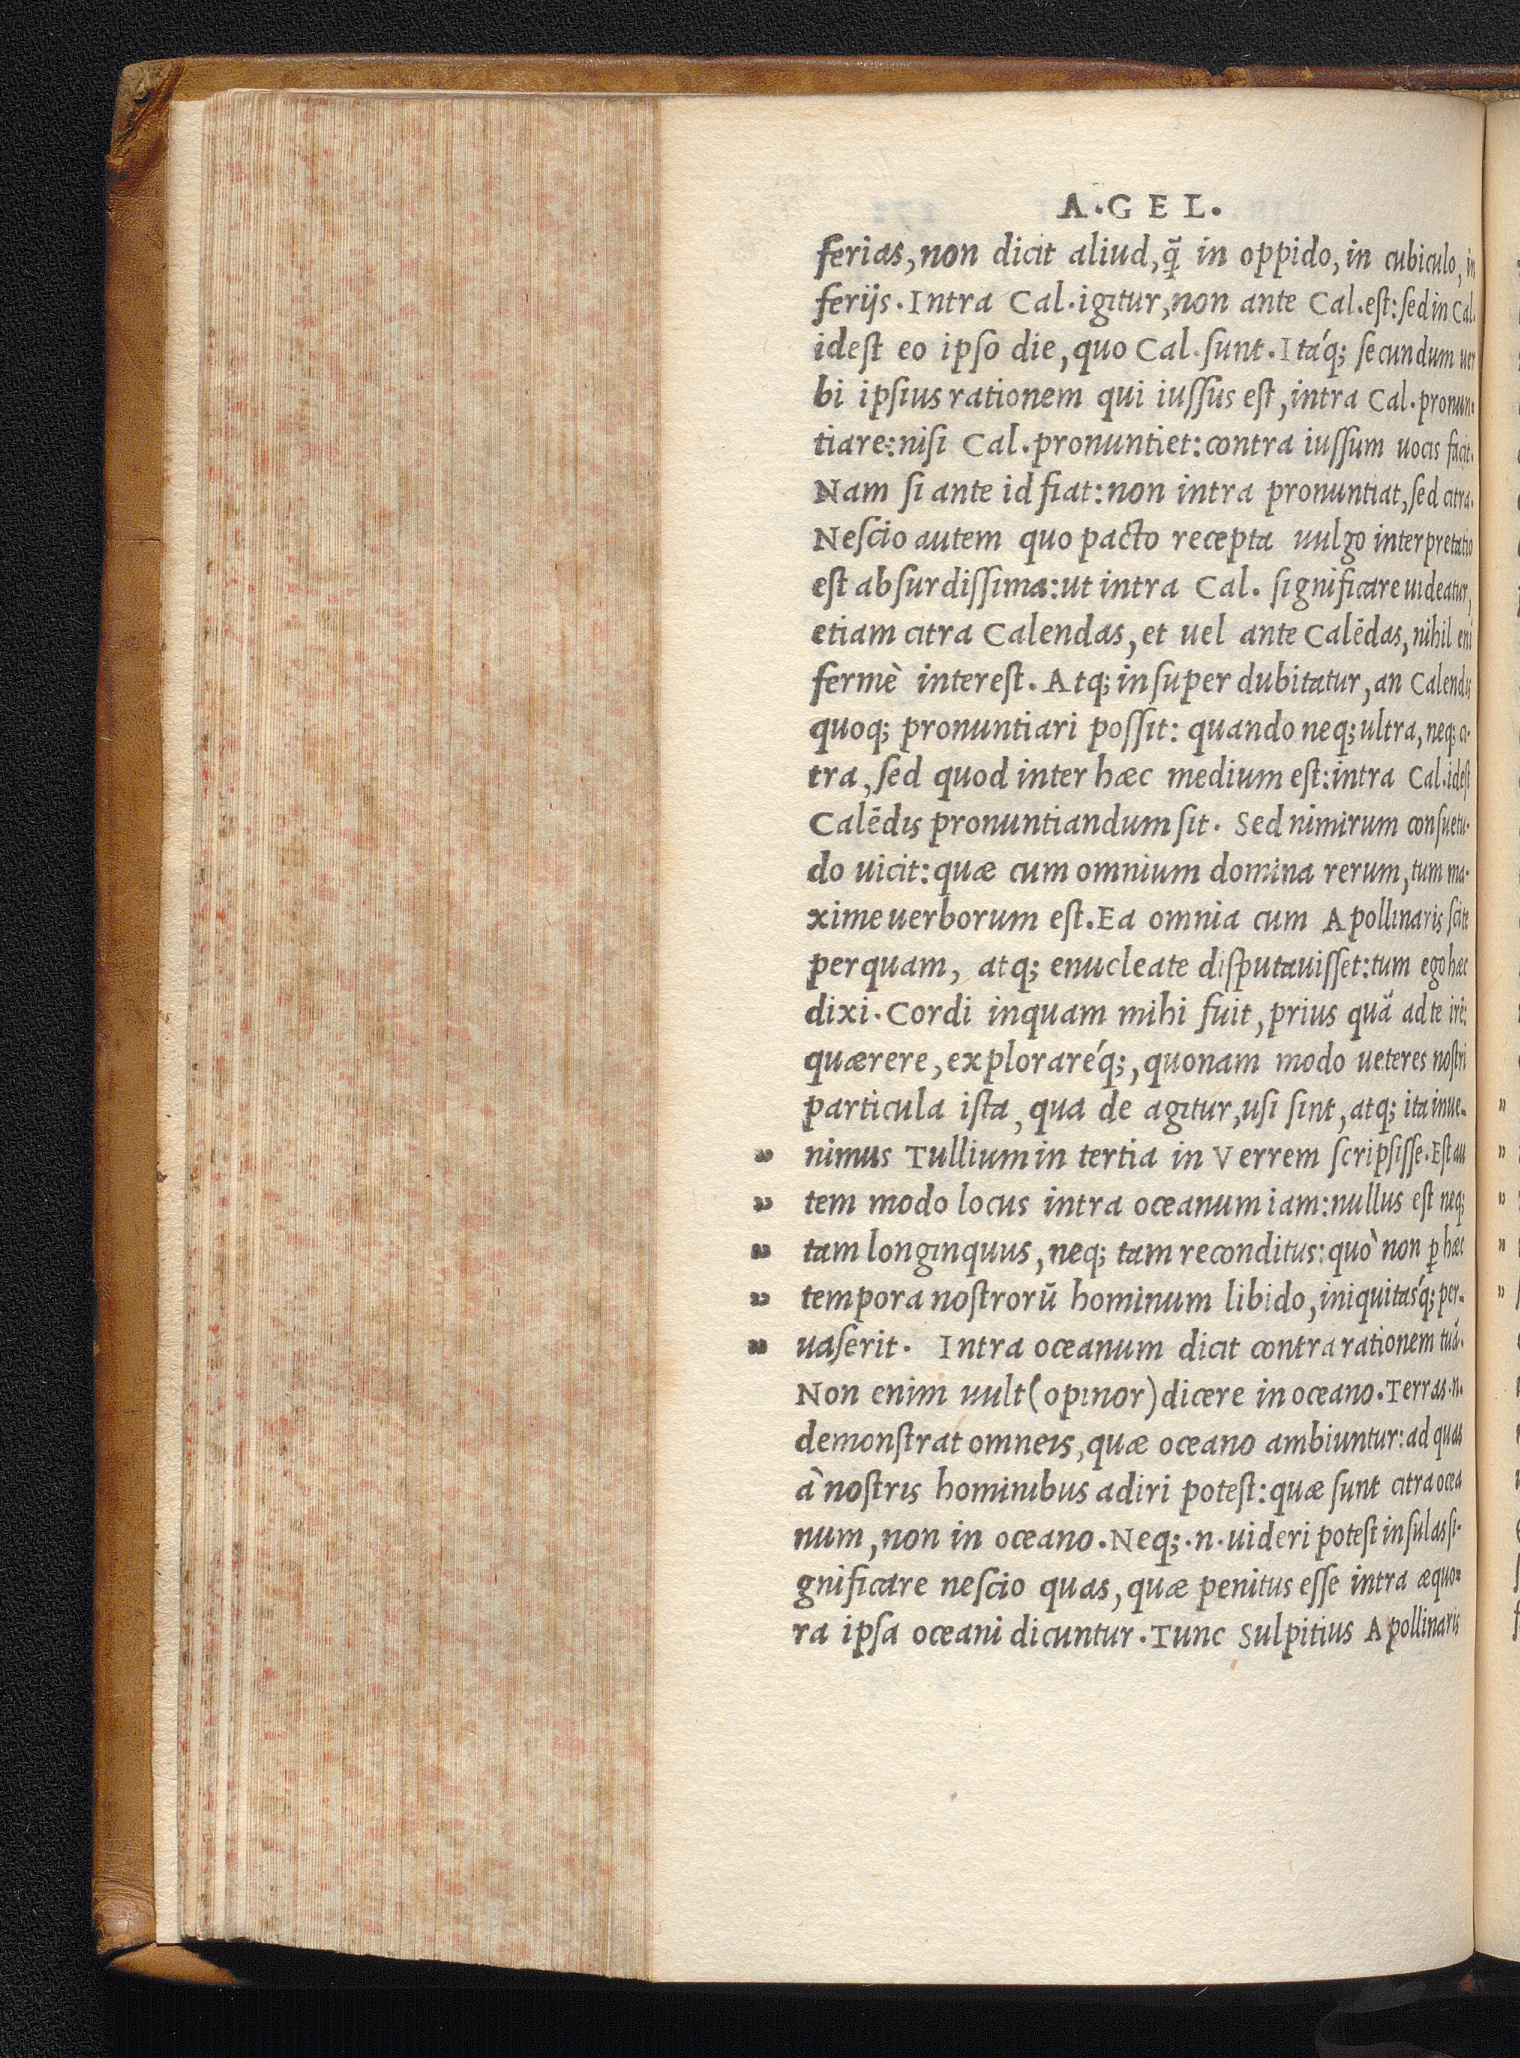 A. GEL.
ferias, non dicit aliud, q̃ in oppido, in cubiculo, in
ferijs. Intra Cal. igitur, non ante Cal. est: sed in Cal.
idest eo ipso die, quo Cal. sunt. Itáq; secundum uer
bi ipsius rationem qui iussus est, intra Cal. pronun-
tiare: nisi Cal. pronuntiet: contra iussum uocis facit.
Nam si ante id fiat: non intra pronuntiat, sed citra.
Nescio autem quo pacto recepta uulgo interpretatio
est absurdissima: ut intra Cal. significare uideatur,
etiam citra Calendas, et uel ante Calēdas, nihil eni
fermè interest. Atq; insuper dubitatur, an Calendis
quoq; pronuntiari possit: quando neq; ultra, neq; ci-
tra, sed quod inter hæc medium est: intra Cal. idest
Calēdis pronuntiandum sit. Sed nimirum consuetu-
do uicit: quæ cum omnium domina rerum, tum ma-
xime uerborum est. Ea omnia cum Apollinaris scite
perquam, atq; enucleate disputauisset: tum ego hæc
dixi. Cordi inquam mihi fuit, prius quã ad te irē;
quærere, exploraréq;, quonam modo ueteres nostri
particula ista, qua de agitur, usi sint, atq; ita inue-
" nimus Tullium in tertia in Verrem scripsisse. Est au
" tem modo locus intra oceanum iam: nullus est neq;
" tam longinquus, neq; tam reconditus: quò non ꝑ hæc
" tempora nostrorū hominum libido, iniquitasq́; per-
" uaserit. Intra oceanum dicit contra rationem tuã.
Non enim uult (opinor) dicere in oceano. Terras .n.
demonstrat omneis, quæ oceano ambiuntur: ad quas
à nostris hominibus adiri potest: quæ sunt citra ocea
num, non in oceano. Neq; .n. uideri potest insulas si-
gnificare nescio quas, quæ penitus esse intra æquo-
ra ipsa oceani dicuntur. Tunc Sulpitius Apollinaris